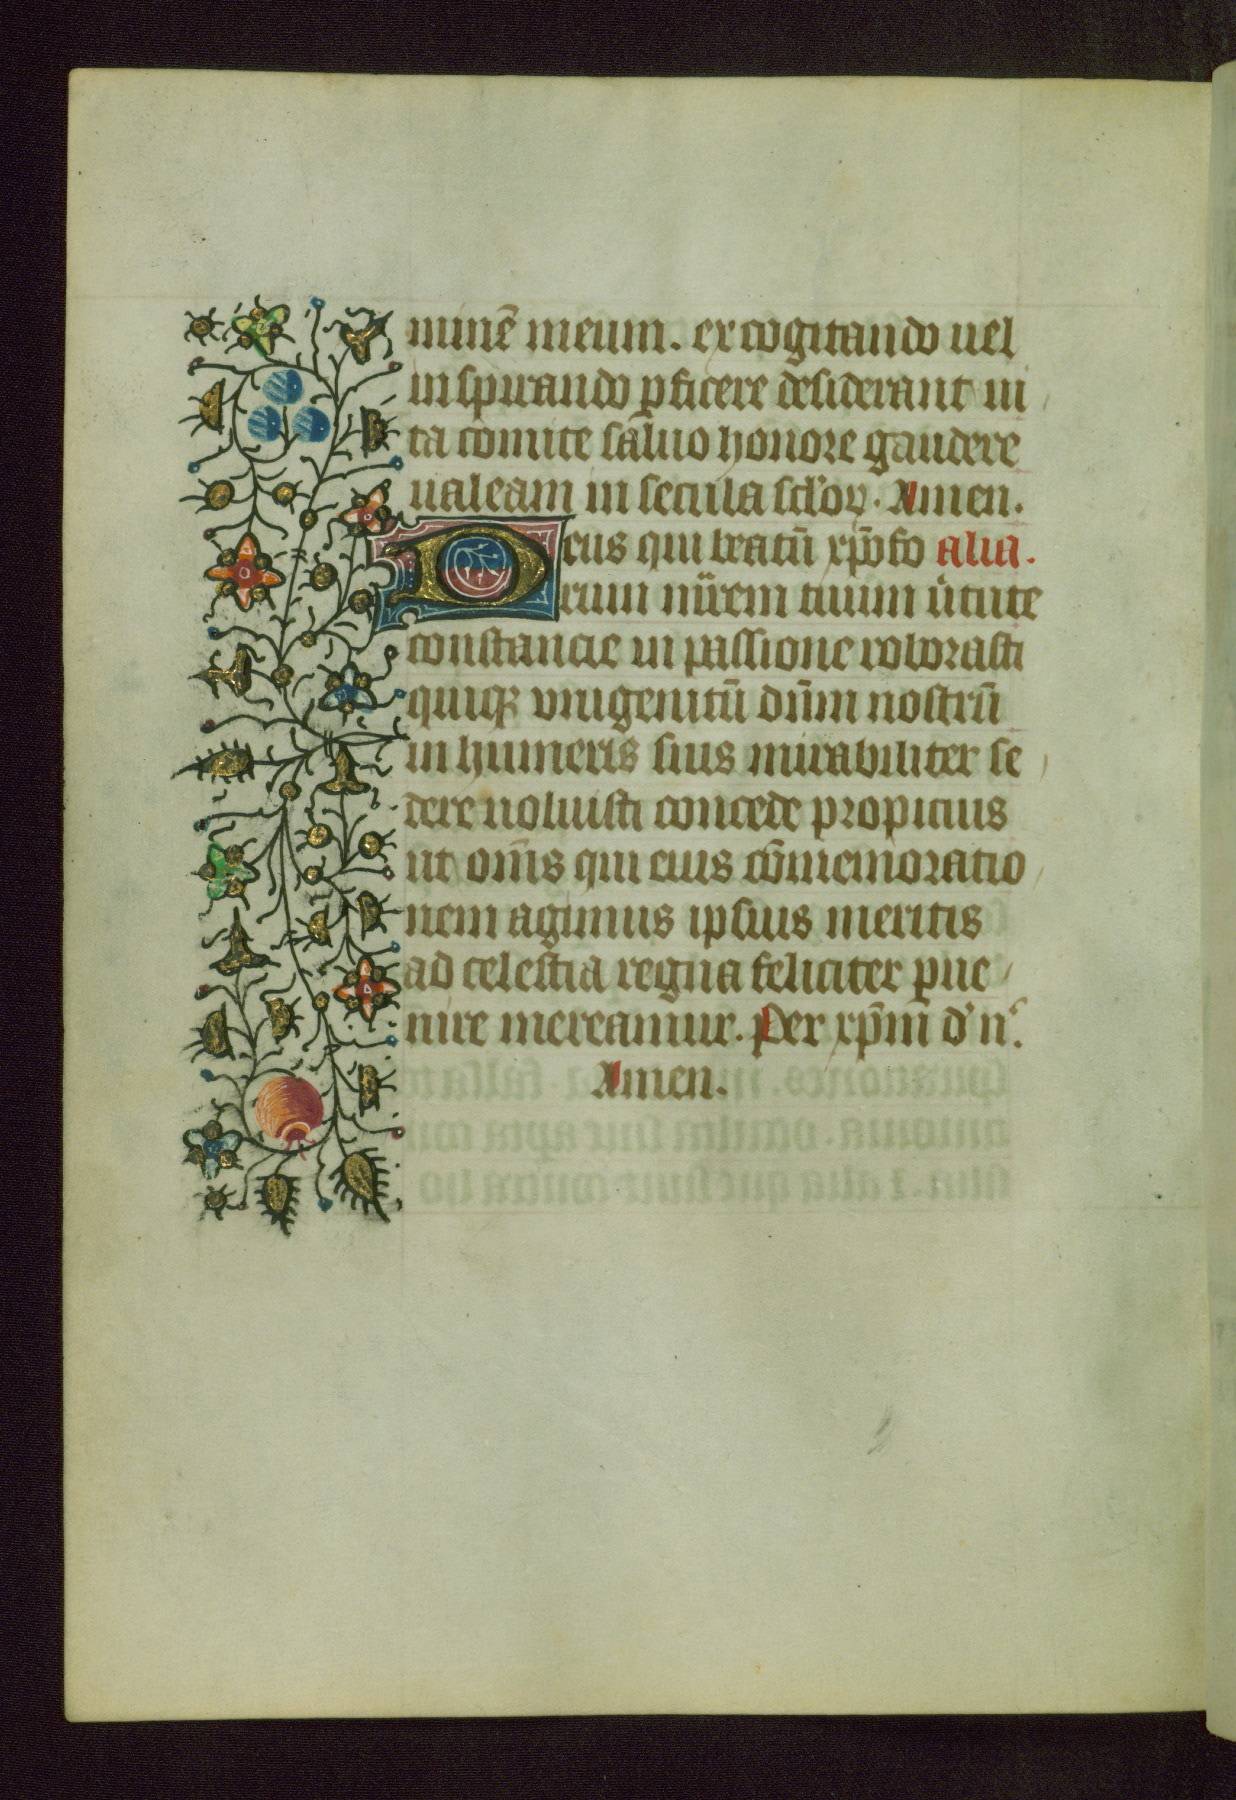 minē meum. excogitando uel
inspirando ꝑficere desiderant ui
ta comite saluo honore gaudere
ualeam in secula sc̄loꝝ. Amen.
Deus qui beatū xp̄ofo alia.
rum mr̄em tuum u̇tute
constancie in passione roborasti
quiqꝫ vnigenitū dn̄m nostrū
in humeris suis mirabiliter se
dere uoluisti concede propicius
ut om̄s qui eius cōmemoratio
nem agimus ipsius meritis
ad celestia regna feliciter ꝑue
nire mereamur. Per xp̄m d' n'.
Amen.